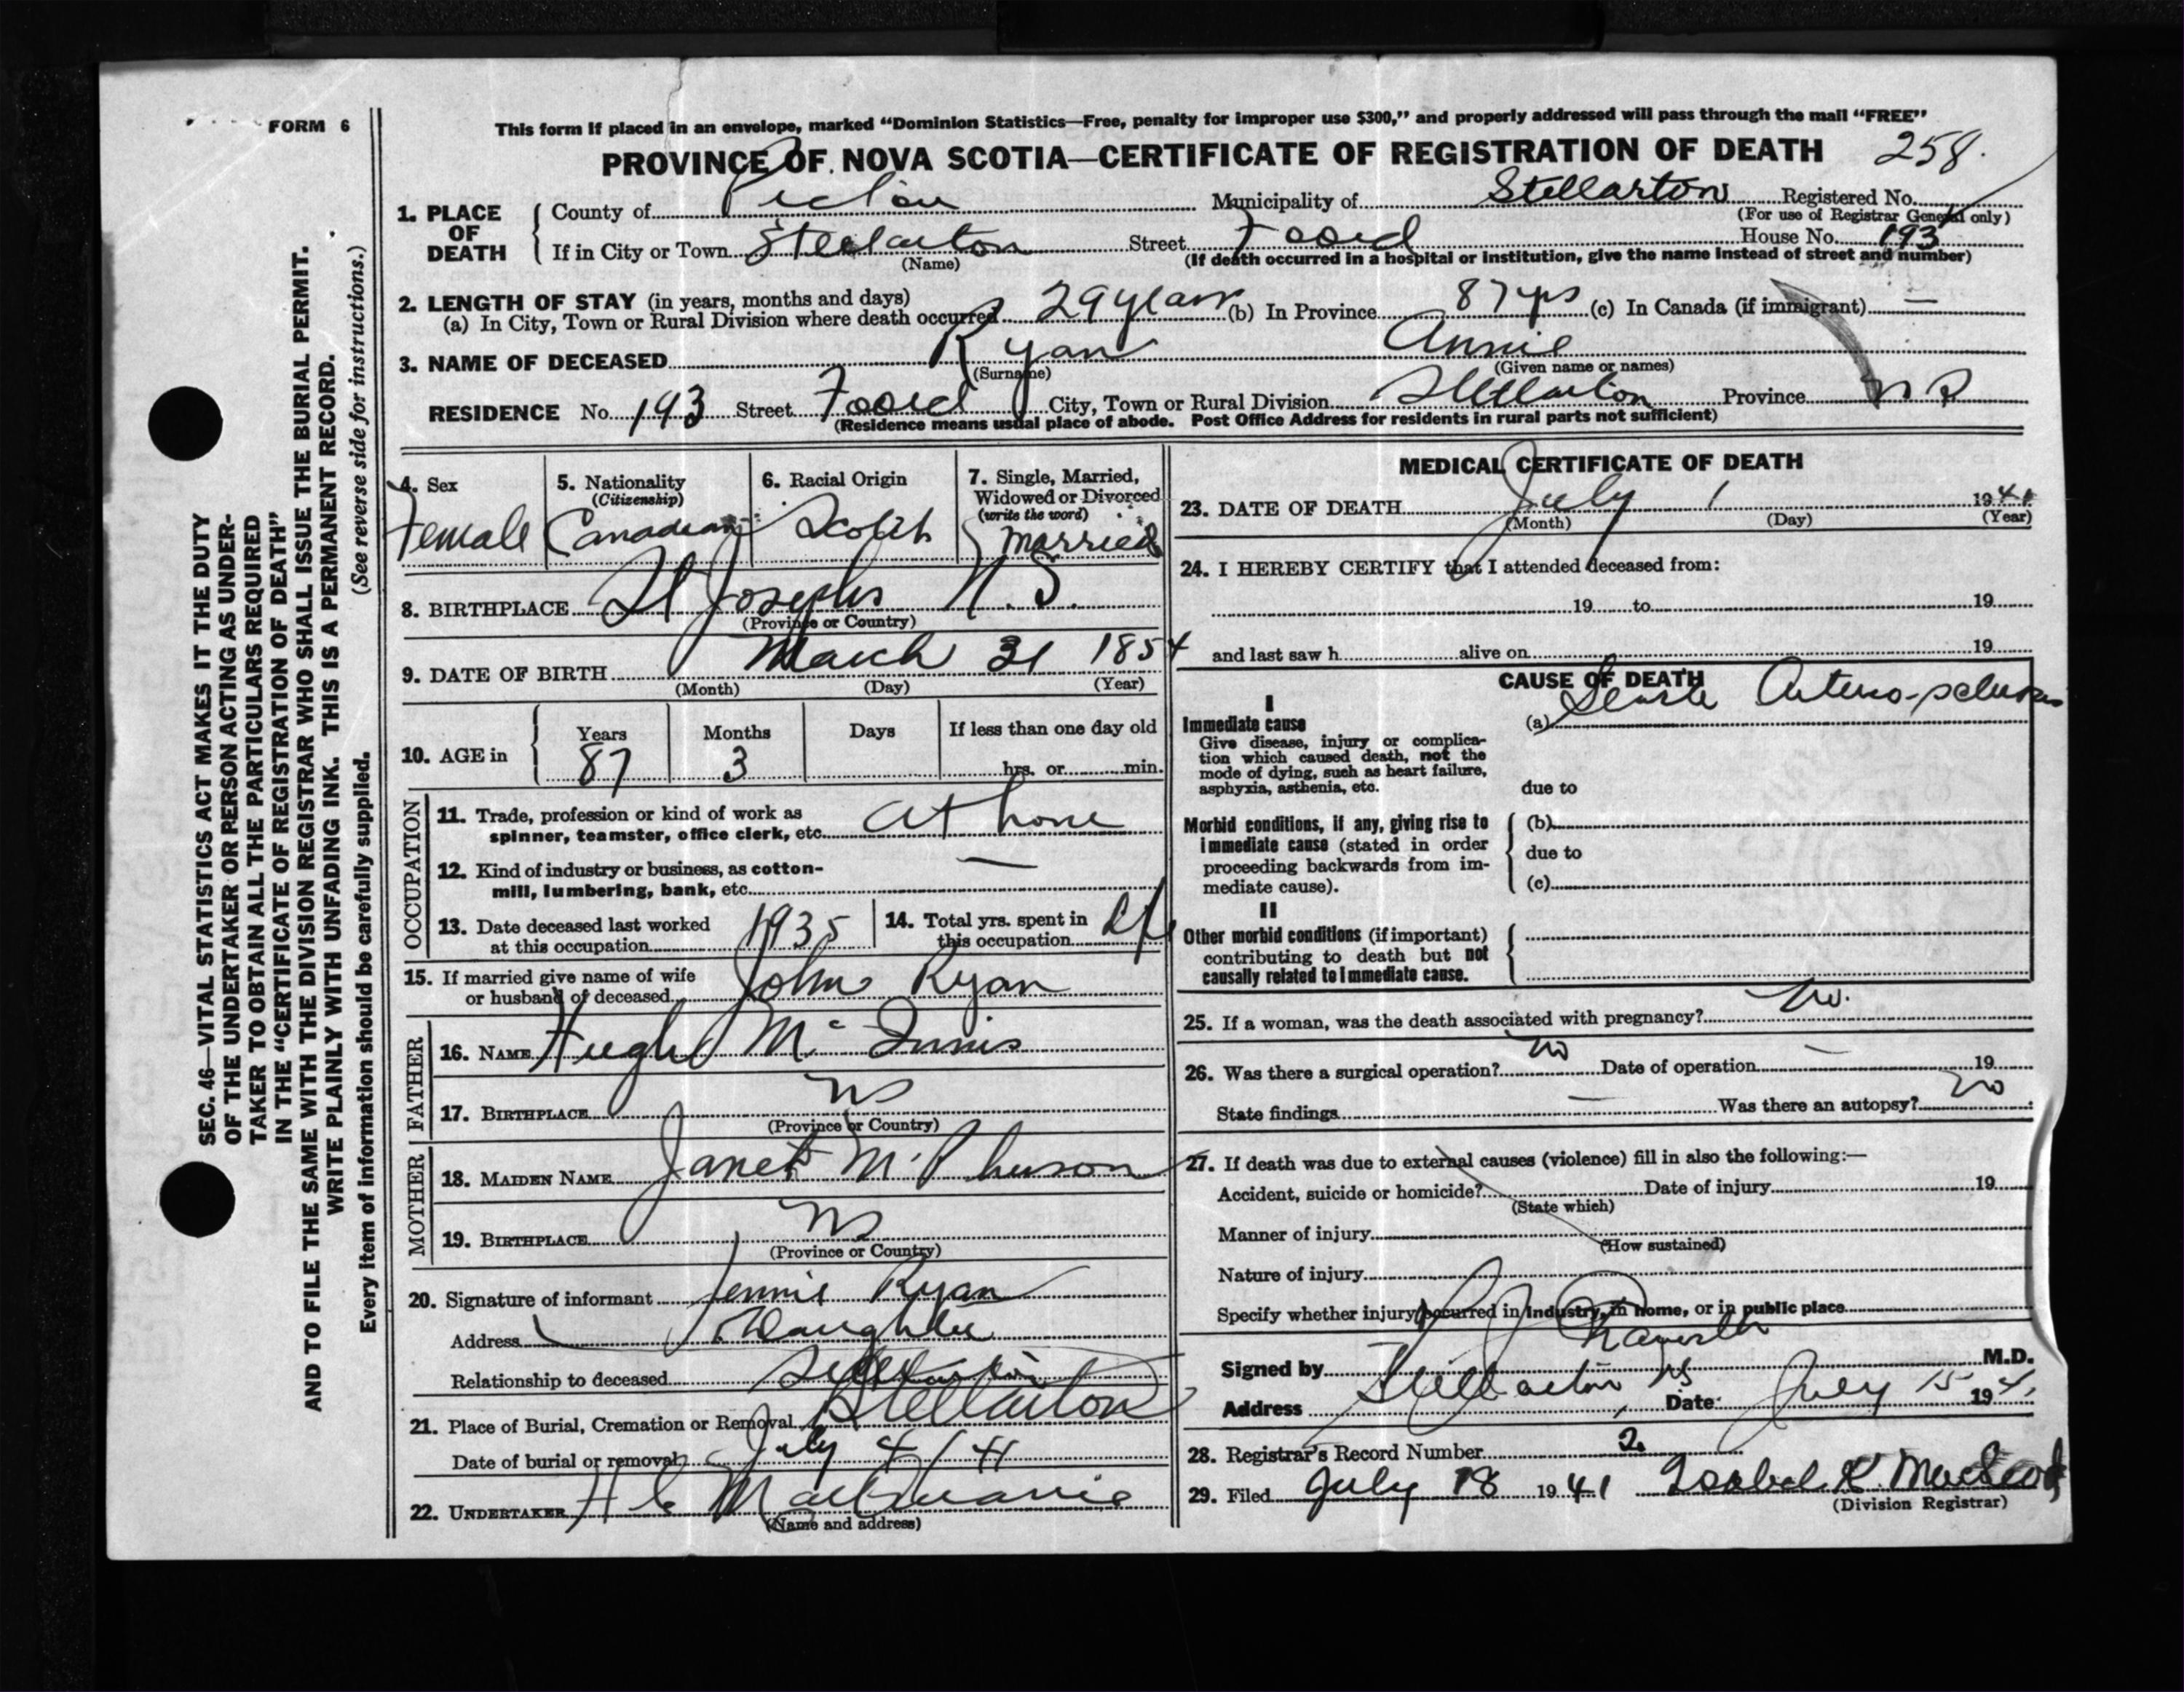 FORM 6
This form if placed in an envelope, marked “Dominion Statistics—Free, penalty for improper use $300,” and properly addressed will pass through the mail “FREE”
PROVINCE OF NOVA SCOTIA—CERTIFICATE OF REGISTRATION OF DEATH 258.
1. PLACE OF DEATH
County of Pictou Municipality of Stellarton Registered No.
(For use of Registrar General only)
If in City or Town Stellarton Street Foord House No. 193
(Name) (If death occurred in a hospital or institution, give the name instead of street and number)
2. LENGTH OF STAY (in years, months and days)
(a) In City, Town or Rural Division where death occurred 29 years (b) In Province 87 yrs (c) In Canada (if immigrant) —
3. NAME OF DECEASED Ryan Annie
(Surname) (Given name or names)
RESIDENCE No. 193 Street Foord City, Town or Rural Division Stellarton Province N S
(Residence means usual place of abode. Post Office Address for residents in rural parts not sufficient)
4. Sex Female
5. Nationality (Citizenship) Canadian
6. Racial Origin Scotch
7. Single, Married, Widowed or Divorced (write the word) Married
8. BIRTHPLACE St Josephs N.S.
(Province or Country)
9. DATE OF BIRTH March 31 1854
(Month) (Day) (Year)
10. AGE in Years 87 Months 3 Days If less than one day old
hrs. or min.
OCCUPATION
11. Trade, profession or kind of work as
spinner, teamster, office clerk, etc. at home
12. Kind of industry or business, as cotton-
mill, lumbering, bank, etc. —
13. Date deceased last worked
at this occupation 1935
14. Total yrs. spent in
this occupation Life
15. If married give name of wife
or husband of deceased John Ryan
FATHER
16. NAME Hugh McInnis
17. BIRTHPLACE NS
(Province or Country)
MOTHER
18. MAIDEN NAME Janet McPherson
19. BIRTHPLACE NS
(Province or Country)
20. Signature of informant Jennie Ryan
Address Daughter
Relationship to deceased Stellarton
21. Place of Burial, Cremation or Removal Stellarton
Date of burial or removal July 4/41
22. UNDERTAKER H C
(Name and address)
MEDICAL CERTIFICATE OF DEATH
23. DATE OF DEATH July 1 1941
(Month) (Day) (Year)
24. I HEREBY CERTIFY that I attended deceased from:
19 to 19
and last saw h alive on 19
CAUSE OF DEATH
I
Immediate cause (a) Senile Arterio-sclerosis
Give disease, injury or complica-
tion which caused death, not the
mode of dying, such as heart failure,
asphyxia, asthenia, etc. due to
Morbid conditions, if any, giving rise to (b)
immediate cause (stated in order
proceeding backwards from im- due to
mediate cause). (c)
II
Other morbid conditions (if important)
contributing to death but not
causally related to immediate cause.
25. If a woman, was the death associated with pregnancy? No.
26. Was there a surgical operation? No Date of operation — 19
State findings — Was there an autopsy? No
27. If death was due to external causes (violence) fill in also the following:—
Accident, suicide or homicide? Date of injury 19
(State which)
Manner of injury
(How sustained)
Nature of injury
Specify whether injury occurred in industry, in home, or in public place
Signed by M.D.
Address Stellarton, NS Date: July 15 1941
28. Registrar's Record Number 2
29. Filed July 18 1941 Isabel K. MacLeod
(Division Registrar)
SEC. 46—VITAL STATISTICS ACT MAKES IT THE DUTY
OF THE UNDERTAKER OR PERSON ACTING AS UNDER-
TAKER TO OBTAIN ALL THE PARTICULARS REQUIRED
IN THE “CERTIFICATE OF REGISTRATION OF DEATH”
AND TO FILE THE SAME WITH THE DIVISION REGISTRAR WHO SHALL ISSUE THE BURIAL PERMIT.
WRITE PLAINLY WITH UNFADING INK. THIS IS A PERMANENT RECORD.
Every item of information should be carefully supplied. (See reverse side for instructions.)